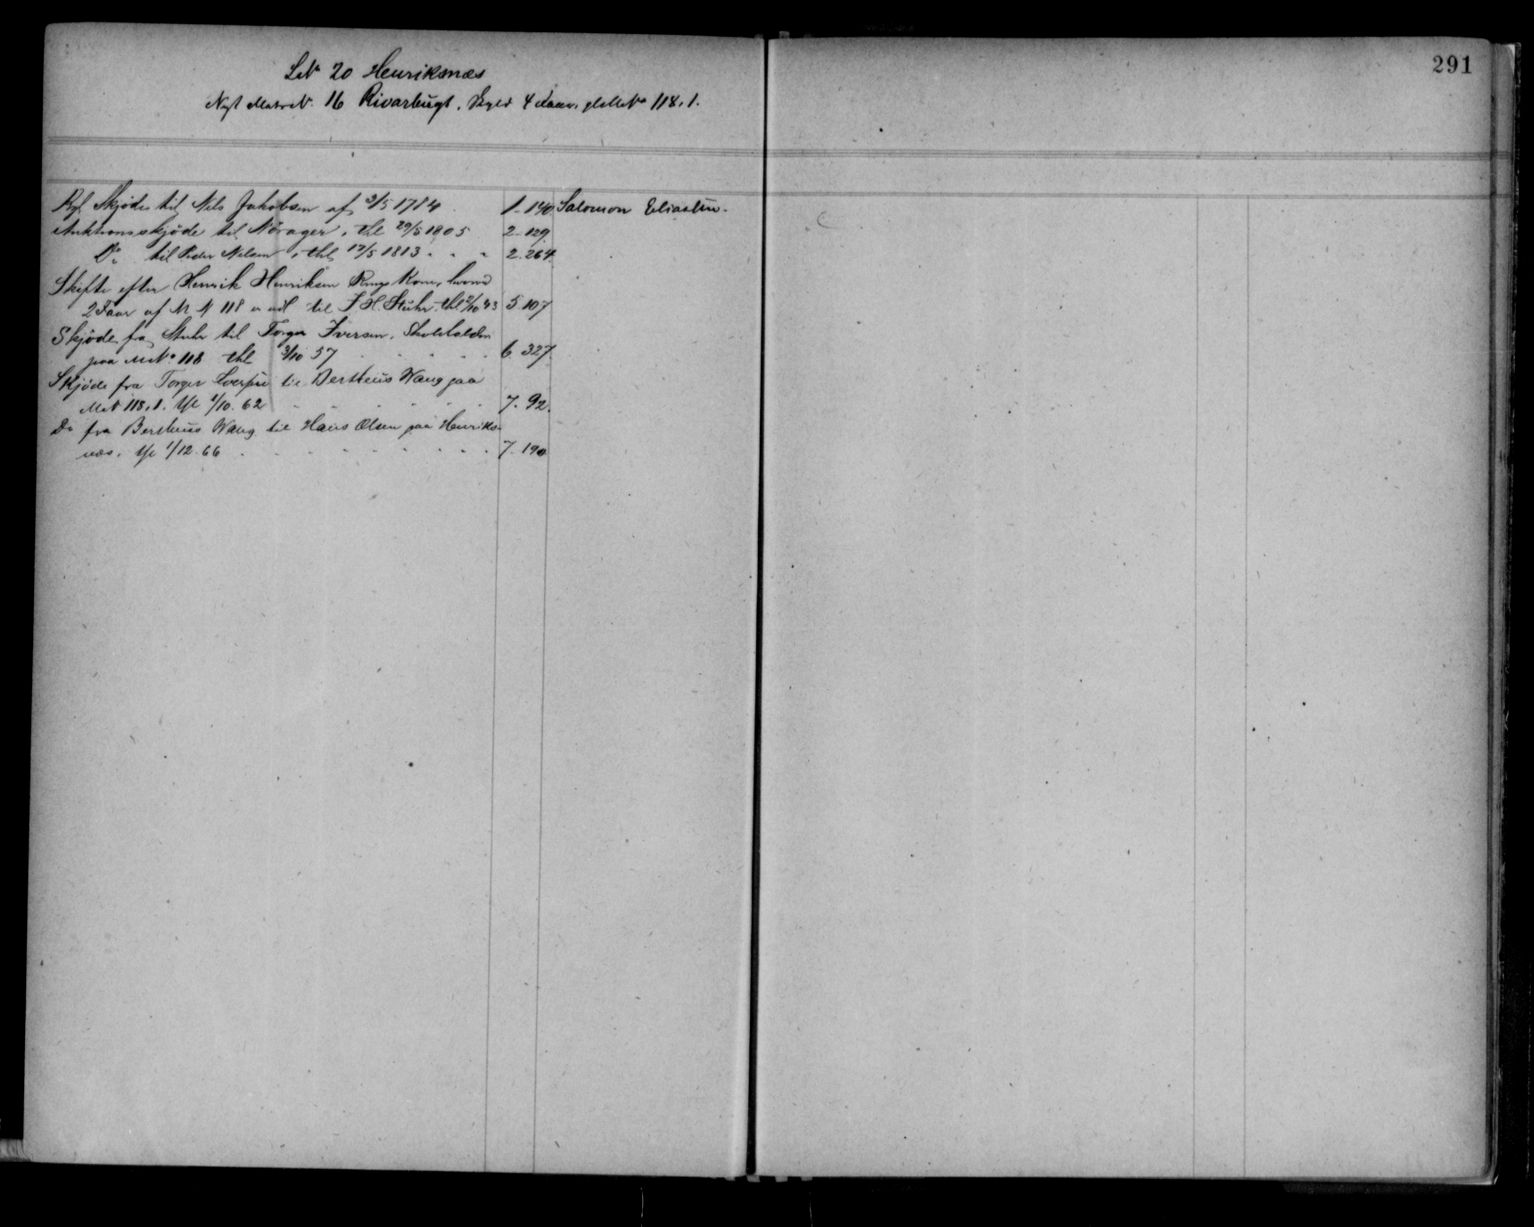 291
LNo 20 Henriksnæs
Nyt MatrN. 16 Rivarbugt. Skyld 4 Faar, gl. MNo 118,1.
Kgl. Skjöde til Nils Jakobsen af 3/5 1784 1-140 Salomon Eliassen.
Auktionsskjöde til Nórager, thl 29/5 1805 2-129
Do til Peder Nilsen, thl 12/5 1813 2-264
Skifte efter Henrik Henriksen Rings Kone, hvorved
2 Faar af M N 118 er udl til J H Stuhr thl 2/10 43 5 107
Skjöde fra Stuhr til Torger Iversen, Skoleholder
paa MNo 118 thl 3/10 57 6 327
Skjöde fra Torger Iversen til Bertheus Wang paa
MN 118,1. thl 1/10.62 7-92.
Do fra Bertheus Wang til Hans Olsen paa Henriks-
næs. thl 1/12.66 7-190